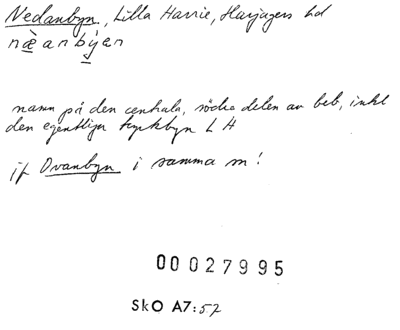 Nedanbyn, Lilla Harrie, Harjagers hd
næanbýen
namn på den centrala, södra delen av beb, inkl
den egentliga kyrkbyn L H
jf Ovanbyn i samma sn!
00027995
SkO A7:57